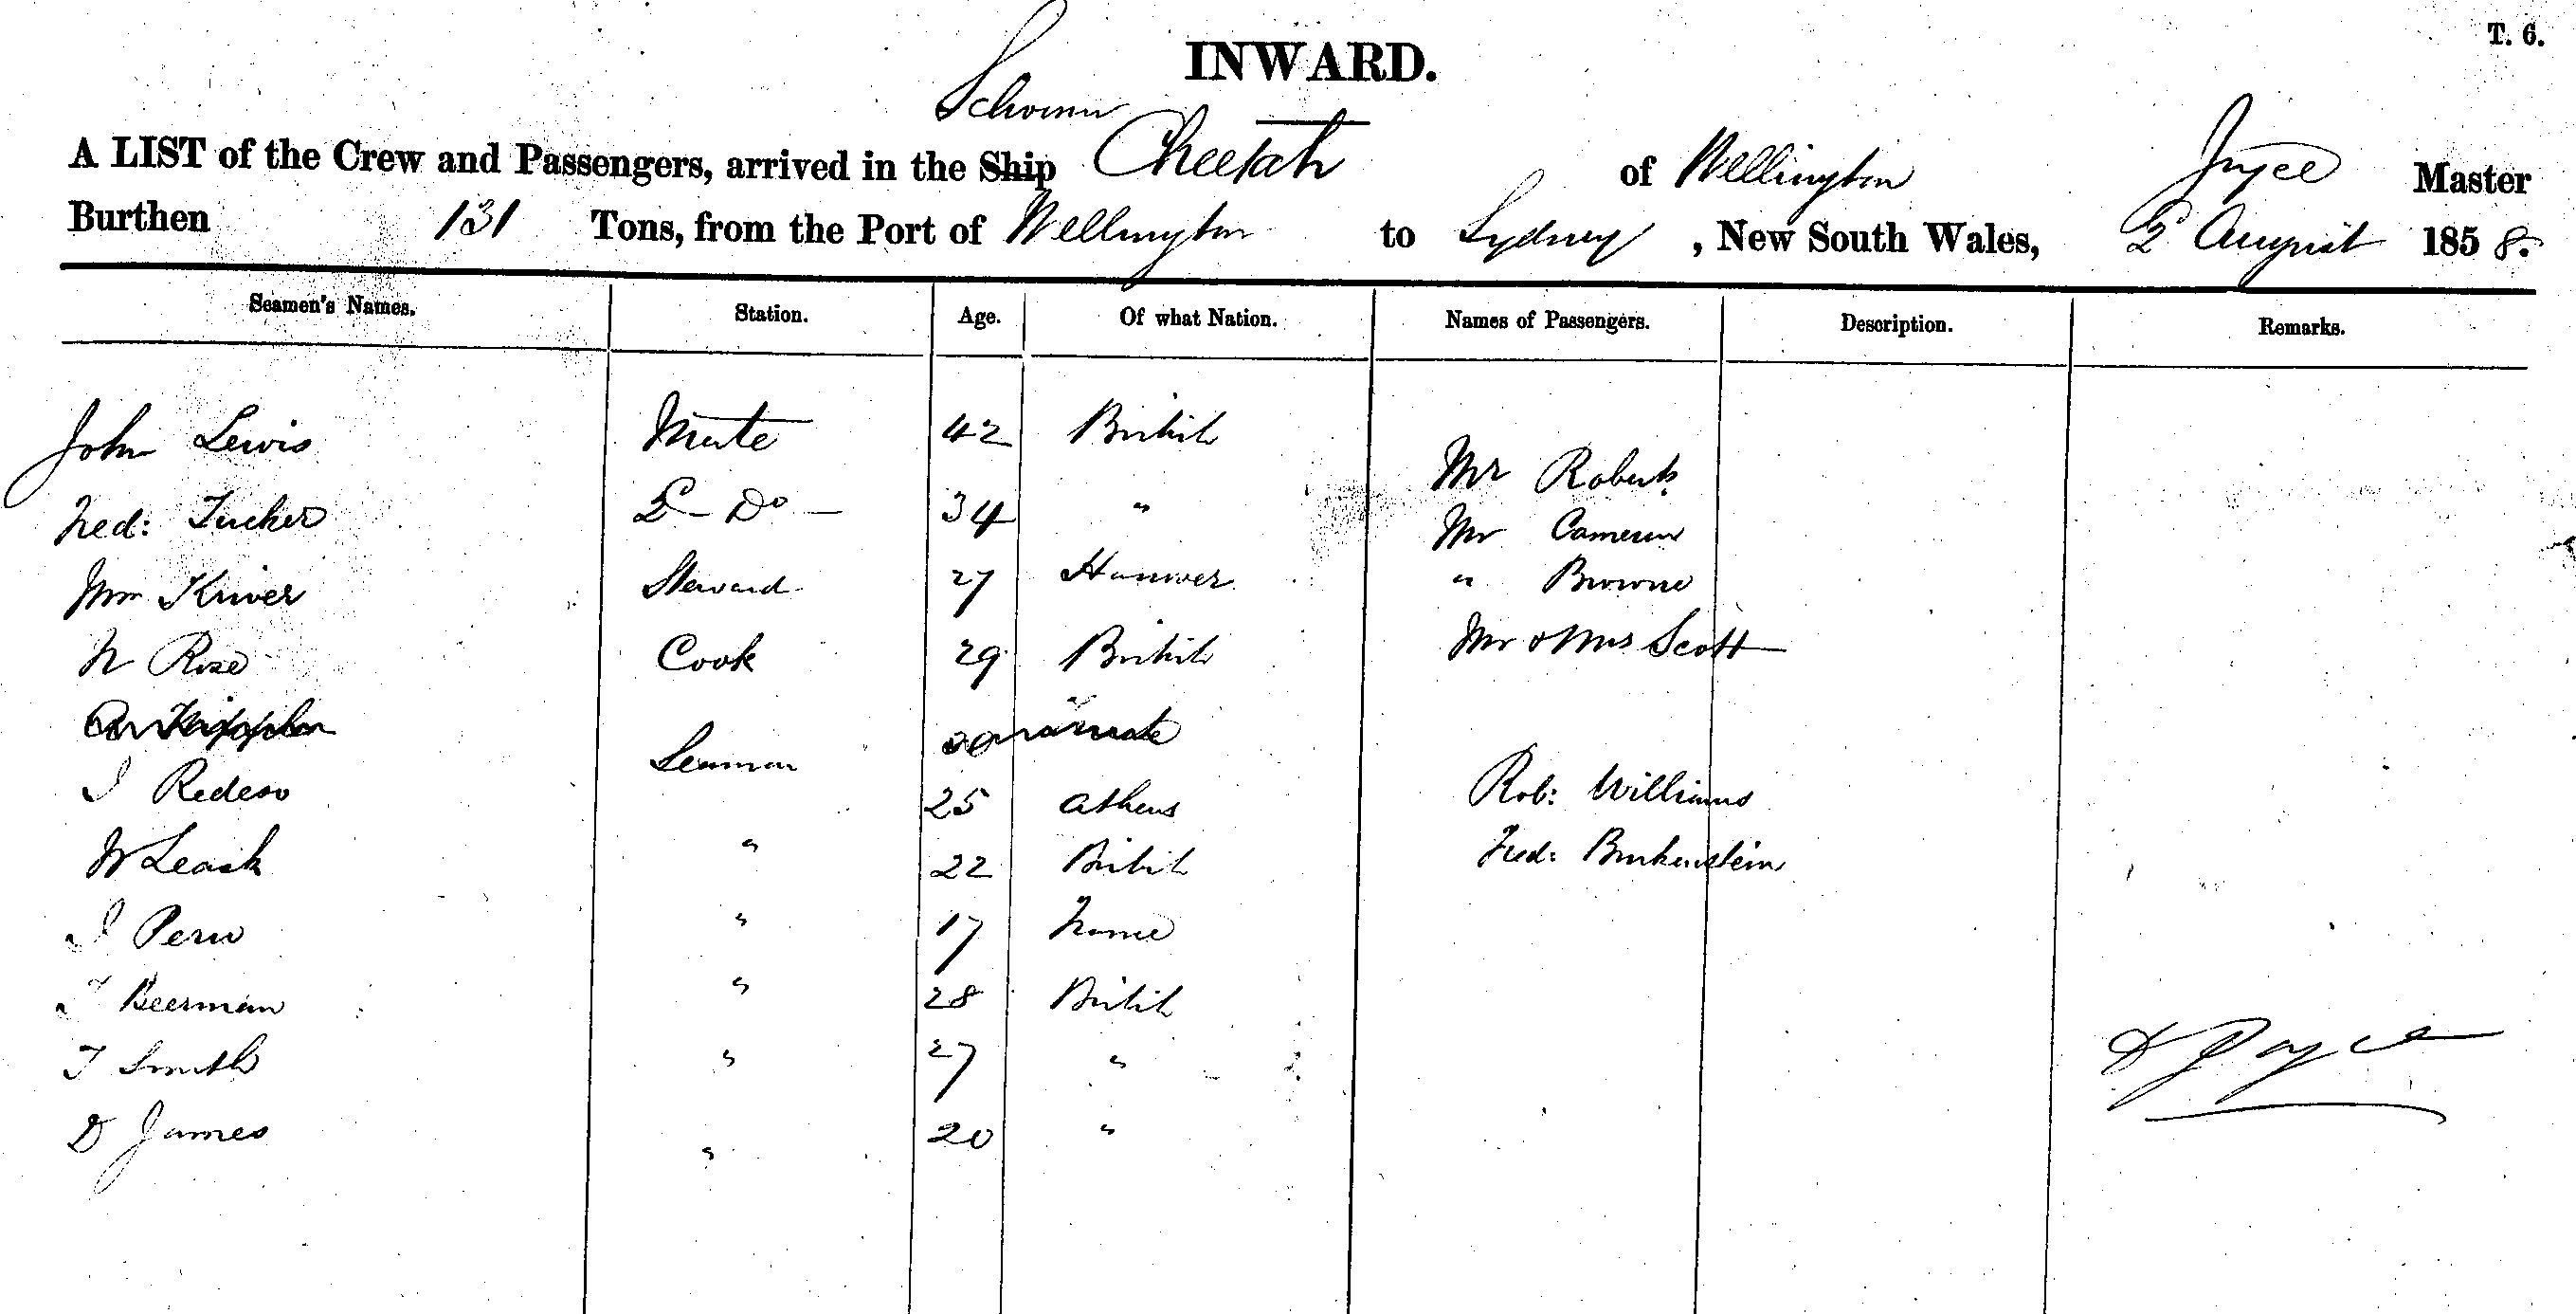 T. 6.
INWARD.
Schooner
A LIST of the Crew and Passengers, arrived in the Ship Cheetah of Wellington Joyce Master
Burthen 131 Tons, from the Port of Wellington to Sydney, New South Wales, 2 August 1858.
Seamen's Names. Station. Age. Of what Nation. Names of Passengers. Description. Remarks.
John Lewis Mate 42 British
Mr Roberts
Fred: Tucker 2 Do 34 "
Mr Cameron
Wm Steward 27 Hanover " Browne
Rose Cook 29 British Mr & Mrs Scott
Seaman
J 25 Athens Rob: Williams
W Leask " 22 British Fred:
J " 17 France
Beerman " 28 British
T Smith " 27 "
D James " 20 "
D Joyce